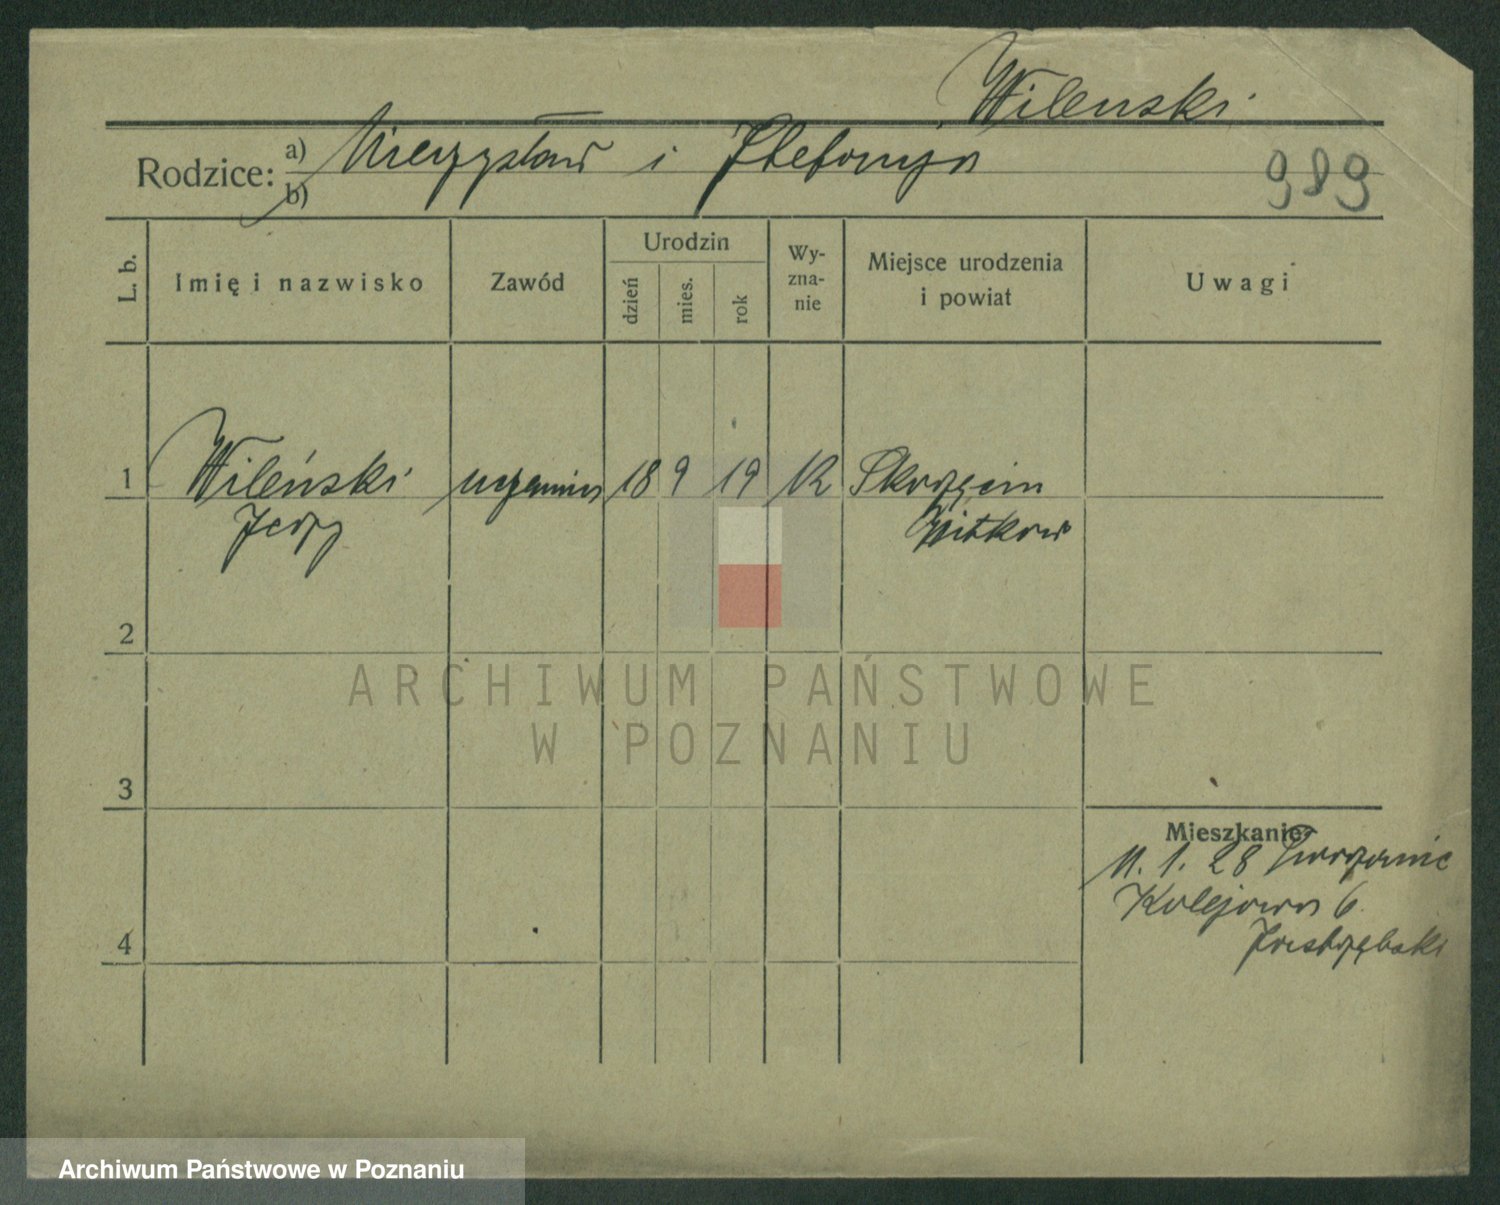 Wilenski
Rodzice: a) Mieczysław i Stefanja
b)
989
L. b.
Imię i nazwisko
Zawód
Urodzin
dzień
mies.
rok
Wy-
zna-
nie
Miejsce urodzenia
i powiat
Uwagi
1 Wileński uczennica 18 9 19 K Skorzęcin
Jerzy Witkowo
2
3
4
Mieszkanie:
11. 1. 28
Kolejowa 6
Jastrzębski
ARCHIWUM PAŃSTWOWE
W POZNANIU
Archiwum Państwowe w Poznaniu